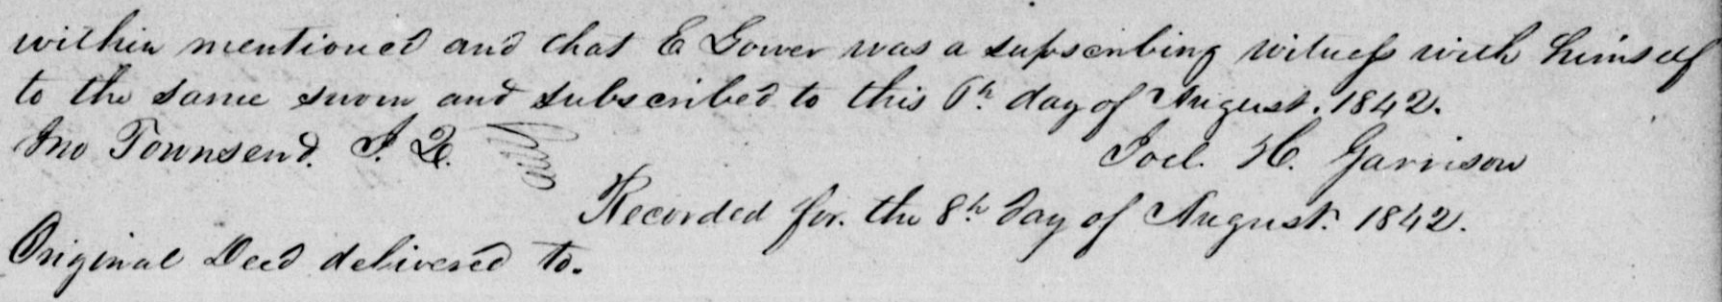 within mentioned and that E Gower was a subscribing witness with himself
to the same sworn and subscribed to this 6th day of August. 1842.
Jno Townsend. J. Q. Joel. H. Garrison
Recorded for. the 8th day of August. 1842.
Original Deed delivered to.